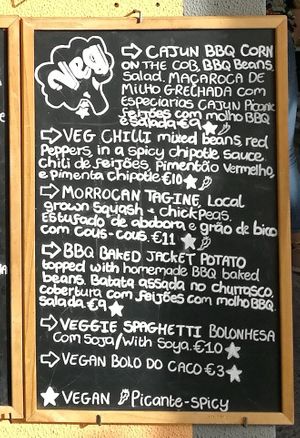 Veg
⇨ CAJUN BBQ CORN
ON THE COB, BBQ Beans,
Salad. MAÇAROCA DE
MILHO GRELHADA com
Especiarias CAJUN Picante
feijões com molho BBQ
e salada €9
⇨ VEG CHILLI mixed beans, red
Peppers, in a spicy chipotle sauce
Chili de feijões, Pimentão Vermelho,
e Pimenta chipotle €10
⇨ MORROCAN TAGINE, Local
grown squash + chickpeas.
Estufado de abobora e grão de bico
com cous-cous. €11
⇨ BBQ BAKED JACKET POTATO
topped with homemade BBQ baked
beans. Batata assada no churrasco,
cobertura com feijões com molho BBQ.
Salada €9
⇨ VEGGIE SPAGHETTI BOLONHESA
com Soja/with Soya. €10
⇨ VEGAN BOLO DO CACO €3
★ VEGAN Picante-spicy